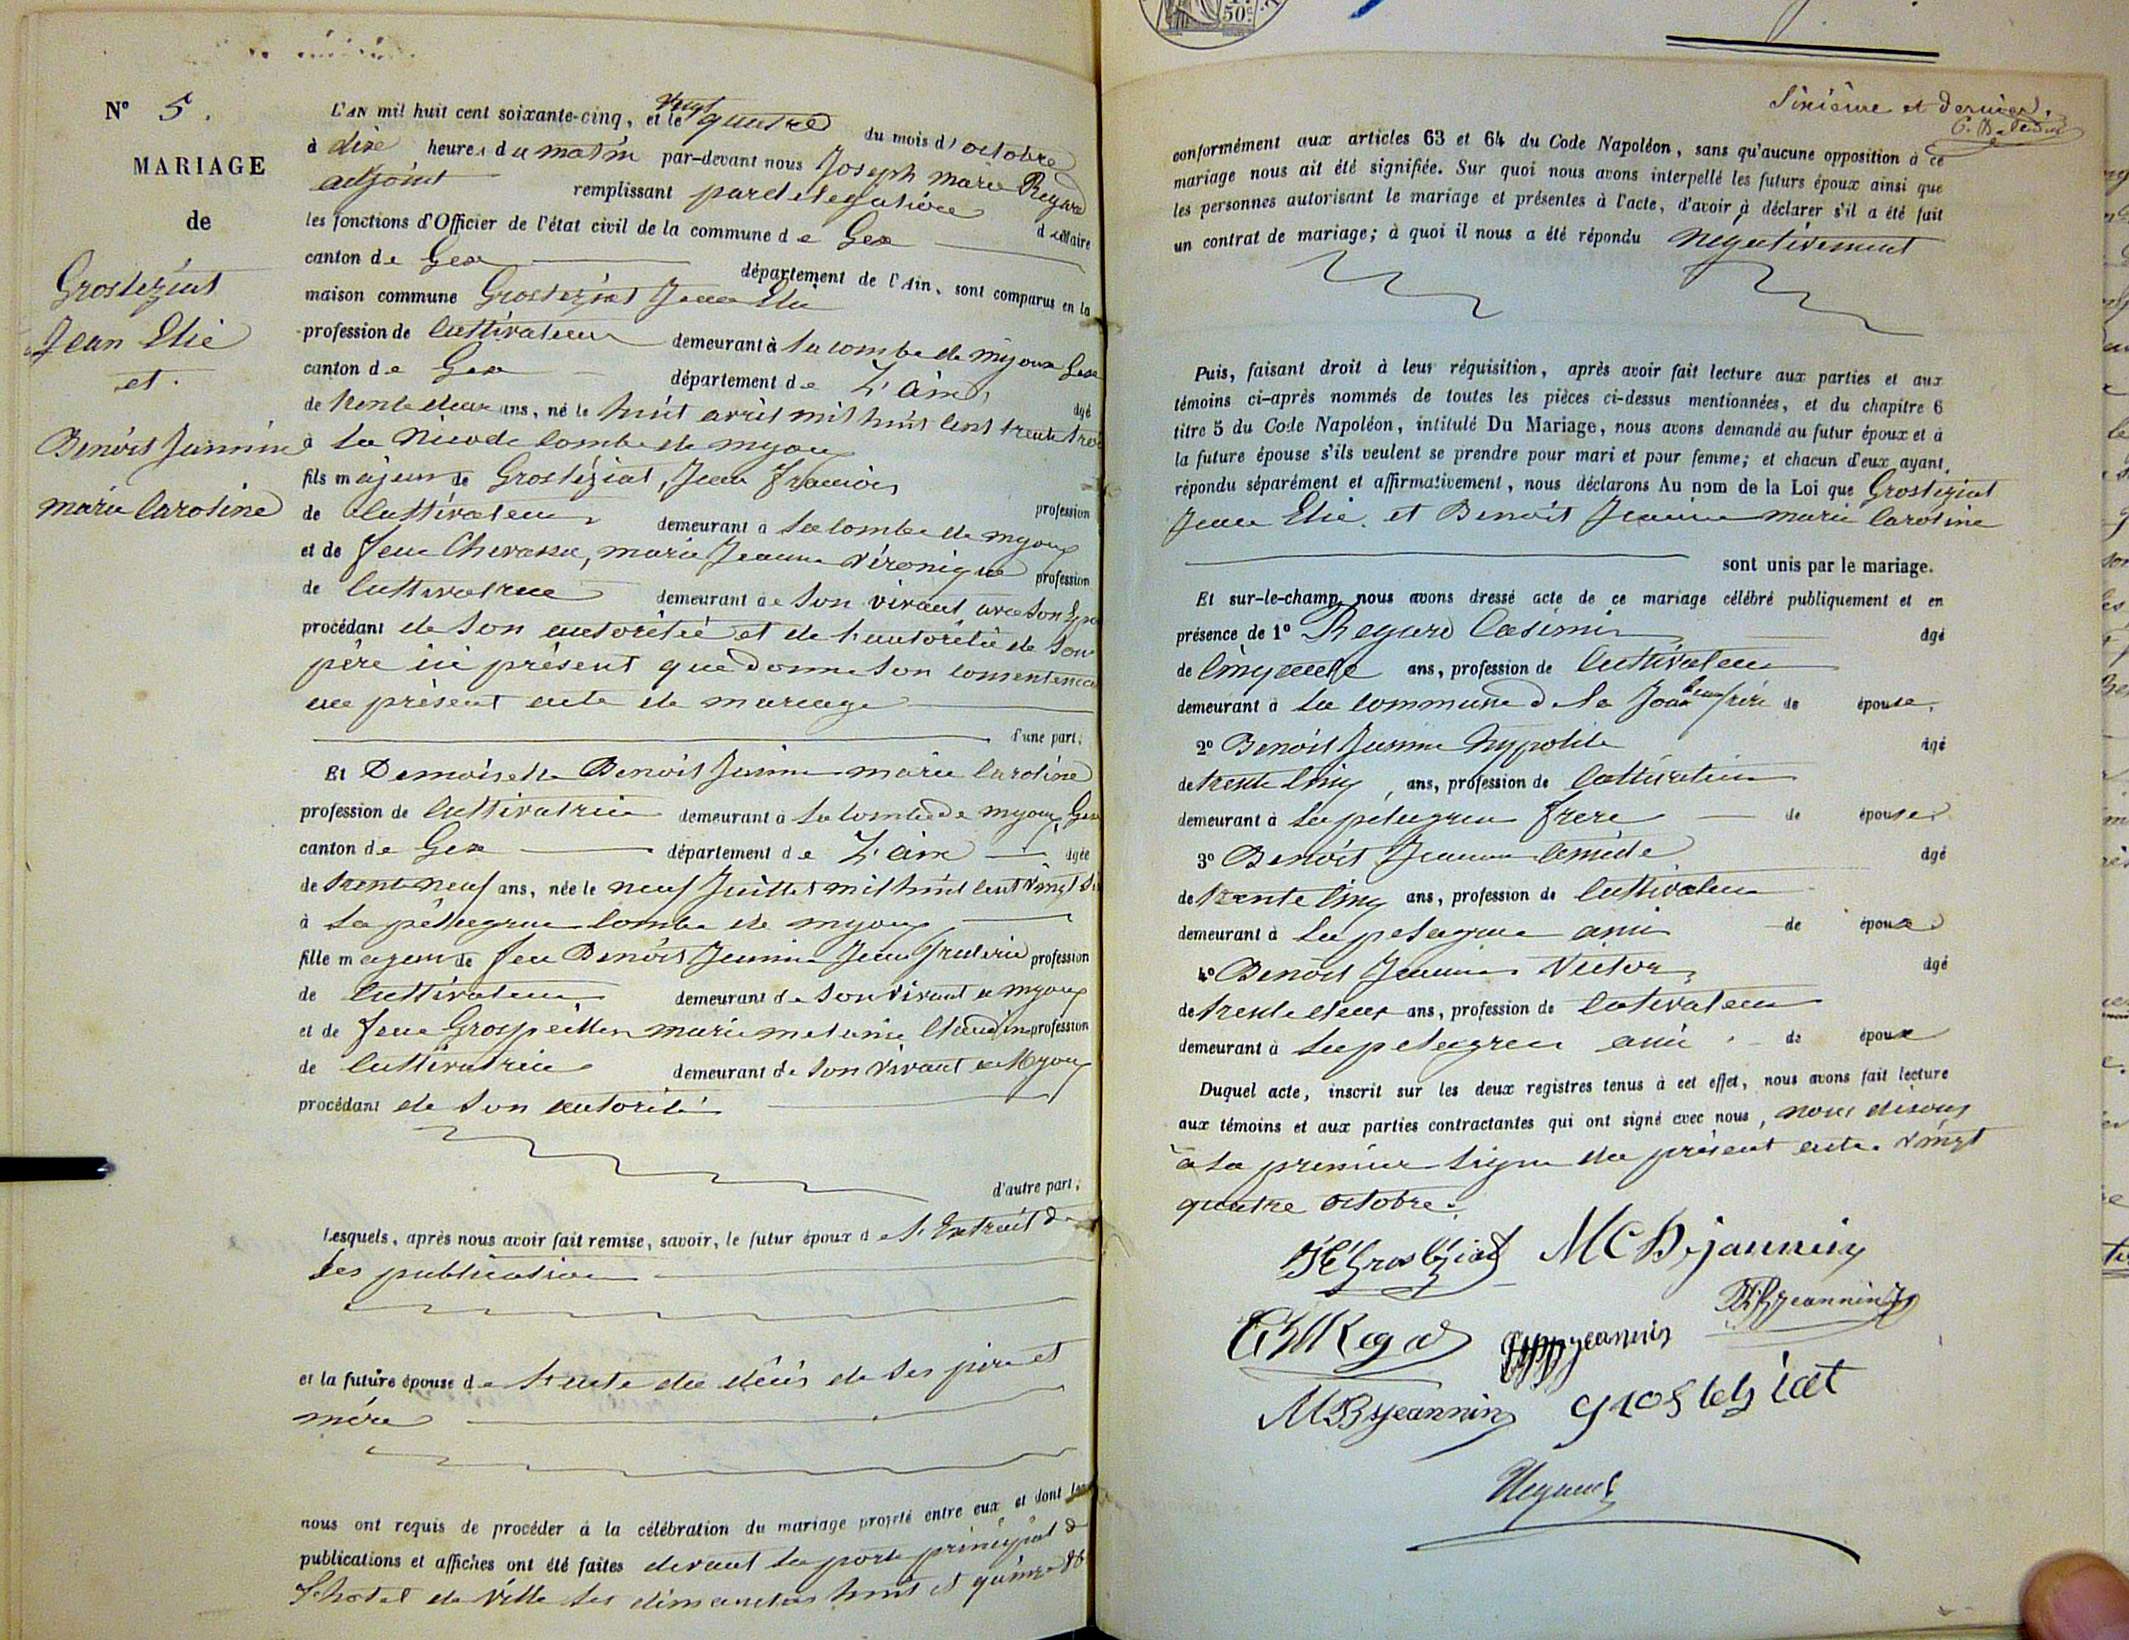 N° 5.
MARIAGE
de
Grostéziat
Jean Elie
et.
Benoit Jannin
marie Caroline
L'AN mil huit cent soixante-cinq, et le vingt quatre du mois d'octobre
à dixe heures du matin par-devant nous Joseph Marie Regard
adjoint remplissant par délégation du Maire
les fonctions d'Officier de l'état civil de la commune de Gex
canton de Gex département de l'Ain, sont comparus en la
maison commune Grosteziat Jean Elie
profession de Cultivateur demeurant à la combe de mijoux Gex
canton de Gex département de L'ain, âgé
de trente deux ans, né le huit avril mil huit cent trente trois
à la combe de myoux
fils majeur de Grostéziat, Jean François profession
de Cultivateur demeurant à la combe de myoux
et de feue Chevassu, marie Jeanne Véronique profession
de Cultivatrice demeurant de son vivant avec son Epoux
procédant de son autorité et de l'autorité de son
père ici présent que donne son consentement
au présent acte de mariage
d'une part;
Et Demoiselle Benoit Jannin marie Caroline
profession de Cultivatrice demeurant à la combe de myoux Gex
canton de Gex département de L'ain âgée
de trente neuf ans, née le neuf Juillet mil huit cent vingt six
à la pellagrue combe de myoux
fille majeure de feu Benoit Jannin Jean frederic profession
de Cultivateur, demeurant de son vivant à myoux
et de feue Grospellier marie melanie Claudine profession
de Cultivatrice demeurant de son vivant à Myoux
procédant de son autorité
d'autre part;
Lesquels, après nous avoir fait remise, savoir, le futur époux de l'Extrait de
ses publication
et la future épouse de l'acte de décès de ses père et
mère
nous ont requis de procéder à la célébration du mariage projeté entre eux et dont les
publications et affiches ont été faites devant la porte principal de
l'hotel de Ville les dimanches huit et quinze 8bre
Sixième et dernier.
conformément aux articles 63 et 64 du Code Napoléon, sans qu'aucune opposition à ce
mariage nous ait été signifiée. Sur quoi nous avons interpellé les futurs époux ainsi que
les personnes autorisant le mariage et présentes à l'acte, d'avoir à déclarer s'il a été fait
un contrat de mariage; à quoi il nous a été répondu négativement
Puis, faisant droit à leur réquisition, après avoir fait lecture aux parties et aux
témoins ci-après nommés de toutes les pièces ci-dessus mentionnées, et du chapitre 6
titre 5 du Code Napoléon, intitulé Du Mariage, nous avons demandé au futur époux et à
la future épouse s'ils veulent se prendre pour mari et pour femme; et chacun d'eux ayant
répondu séparément et affirmativement, nous déclarons Au nom de la Loi que Grosteziat
Jean Elie. et Benoit Jeannin marie Caroline
sont unis par le mariage.
Et sur-le-champ nous avons dressé acte de ce mariage célébré publiquement et en
présence de 1° Regard Casimir âgé
de Cinquante ans, profession de Cultivateur
demeurant à la commune de la Joux beau frère de épouse,
2° Benoit Jannin hypolite âgé
de trente Cinq, ans, profession de Cultivateur
demeurant à la pelagrue frere de épouse,
3° Benoit Jeannin âgé
de trente cinq ans, profession de Cultivateur
demeurant à la pelagrue ami de époux
4° Benoit Jeannin Victor, âgé
de trente deux ans, profession de Cultivateur
demeurant à la pelagrue ami de époux
Duquel acte, inscrit sur les deux registres tenus à cet effet, nous avons fait lecture
aux témoins et aux parties contractantes qui ont signé avec nous, nous disons
à la première ligne du présent acte. vingt
quatre octobre.
JE Grostéziat MC Bjeannin
Bjeannin
Regad jeannin
M Bjeannin grosteziat
Regard